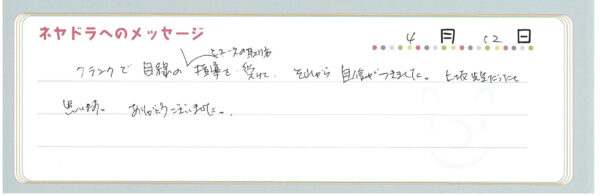 ネヤドラへのメッセージ
4月12日
クランクで目線の指導を受けて、それから自信がつきました。上坂先生だったと
思います。ありがとうございました。